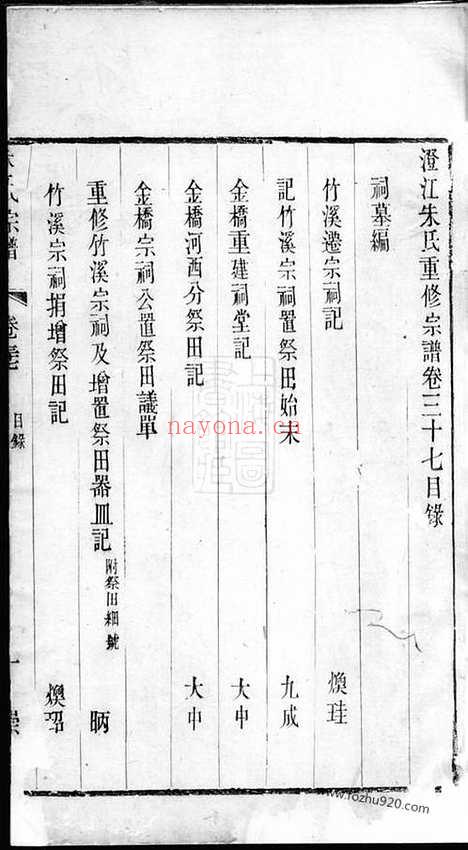 澄江朱氏重修宗譜卷三十七目錄
祠墓編
竹溪遷宗祠記 煥珪
記竹溪宗祠置祭田始末 九成
金橋重建祠堂記 大中
金橋河西分祭田記 大中
金橋宗祠公置祭田議單
重修竹溪宗祠及增置祭田器皿記 附祭田細號 昞
竹溪宗祠捐增祭田記 煥
氏宗譜 卷 目錄 一
nayona.cn
www.fozhu920.com